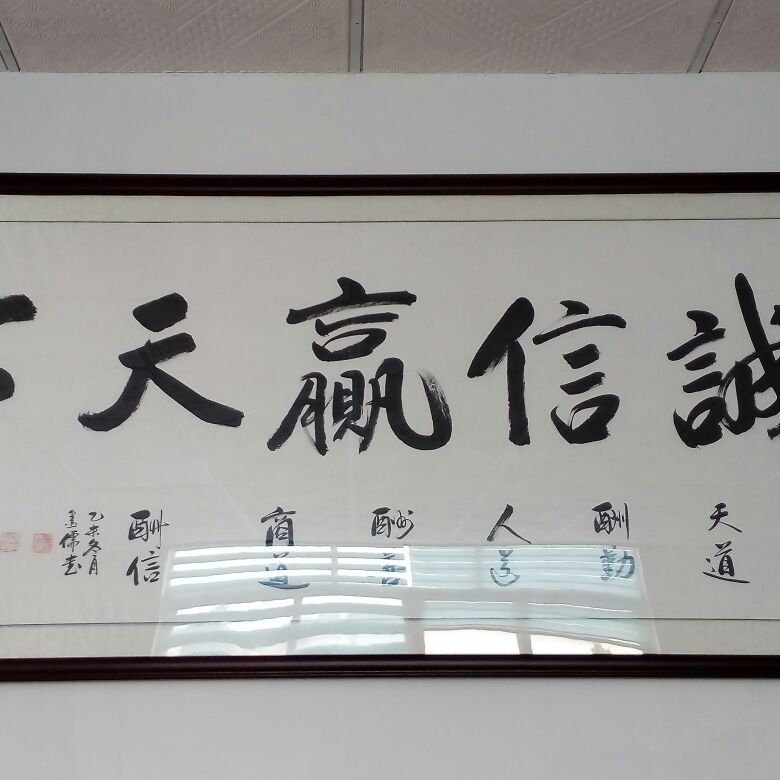 誠信贏天下
天道
酬勤
人道
酬善
商道
酬信
乙未冬月